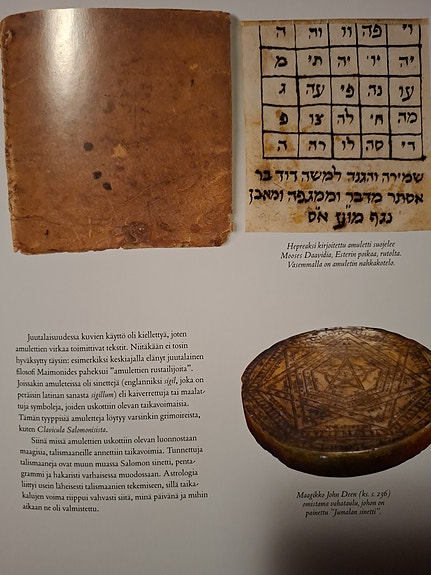 וי פה וו וה ה
יה יו׳ יה תי׳ מ
עו נה פי עה ג
מה חי׳ לה צו פ
די סה לו רה ה
שמירה והגנה למשה דוד בר
אסתר מדבר וממגפה ומאבן
נגף
Hepreaksi kirjoitettu amuletti suojelee
Mooses Daavidia, Esterin poikaa, rutolta.
Vasemmalla on amuletin nahkakotelo.
Juutalaisuudessa kuvien käyttö oli kiellettyä, joten
amulettien virkaa toimittivat tekstit. Niitäkään ei tosin
hyväksytty täysin: esimerkiksi keskiajalla elänyt juutalainen
filosofi Maimonides paheksui "amulettien rustailijoita".
Joissakin amuleteissa oli sinettejä (englanniksi sigil, joka on
peräisin latinan sanasta sigillum) eli kaiverrettuja tai maalat-
tuja symboleja, joiden uskottiin olevan taikavoimaisia.
Tämän tyyppisiä amuletteja löytyy varsinkin grimoireista,
kuten Clavicula Salomonisista.
Siinä missä amulettien uskottiin olevan luonnostaan
maagisia, talismaaneille annettiin taikavoimia. Tunnettuja
talismaaneja ovat muun muassa Salomon sinetti, penta-
grammi ja hakaristi varhaisessa muodossaan. Astrologia
liittyi usein läheisesti talismaanien tekemiseen, sillä taika-
kalujen voima riippui vahvasti siitä, minä päivänä ja mihin
aikaan ne oli valmistettu.
Maagikko John Deen (ks. s. 236)
omistama vahataulu, johon on
painettu "Jumalan sinetti".